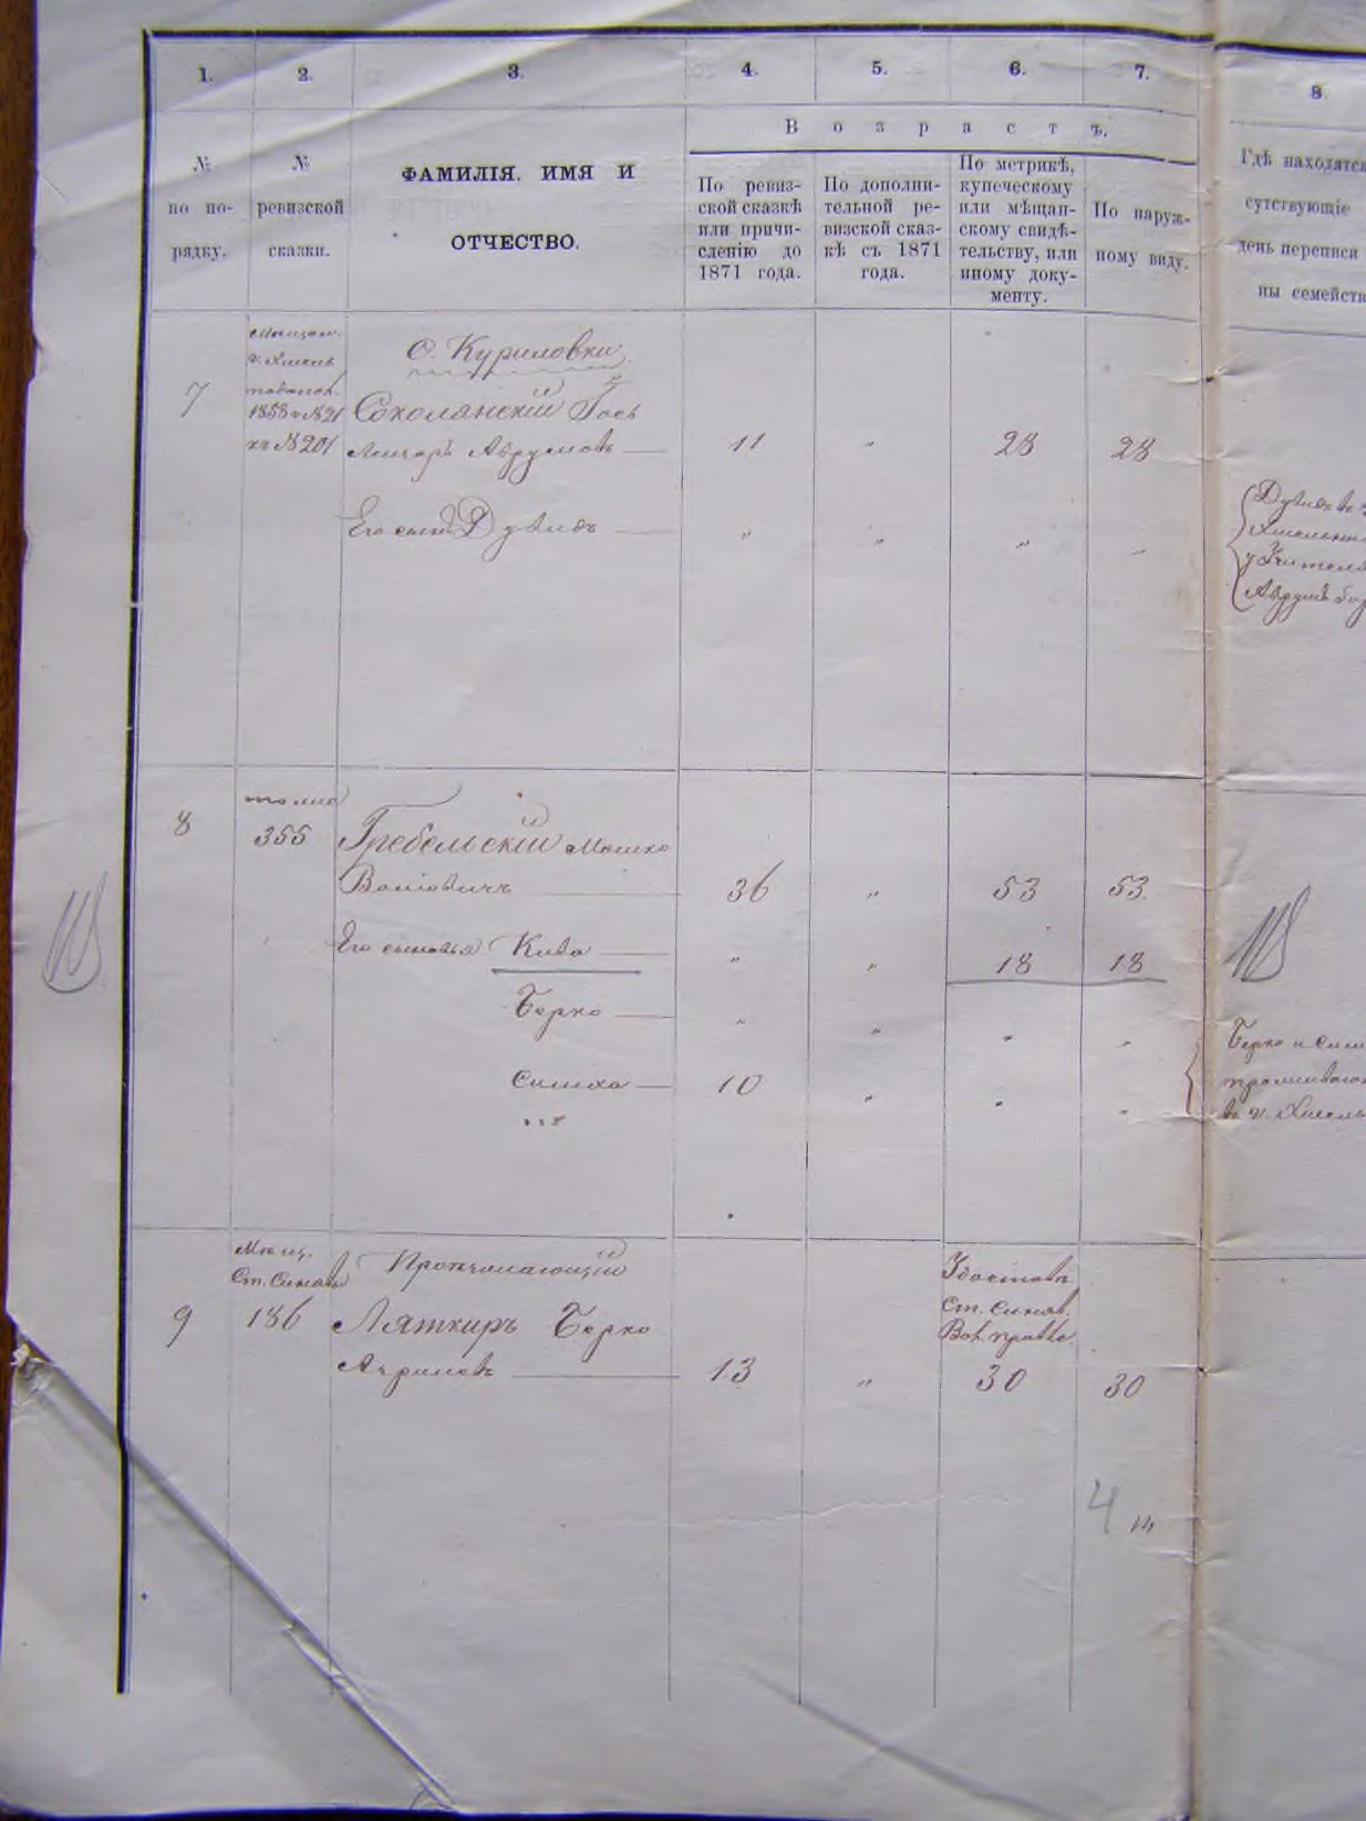 1. 2. 3. 4. 5. 6. 7. 8.
В о з р а с т ъ.
№
по по-
рядку.
№
ревизской
сказки.
ФАМИЛІЯ, ИМЯ И
ОТЧЕСТВО.
По ревиз-
ской сказкѣ
или причи-
сленію до
1871 года.
По дополни-
тельной ре-
визской сказ-
кѣ съ 1871
года.
По метрикѣ,
купеческому
или мѣщан-
скому свидѣ-
тельству, или
иному доку-
менту.
По наруж-
ному виду.
Гдѣ находятся
сутствующіе
день переписи
ны семейств
С. Куриловки
7
1858 г. №21
№201
Соколянскій Гось
Аврумовъ 11 „ 28 28
Его сынъ Дувидъ „ „ „ „
Дувидъ въ
у Учителя
Аврумъ
8
тоже
355
Гребельскій Мошко
36 „ 53 53
Его сыновья Кива „ „ 18 18
Берко „ „ „ „
Симха 10 „ „ „
Берко и Сим
проживаю
въ г. Хмель
Мѣщ.
Ст. Синяв
9
186
Ляткиръ Берко
13 „ 30 30
Удостов.
Ст. Синяв.
Вол. Правл.
4